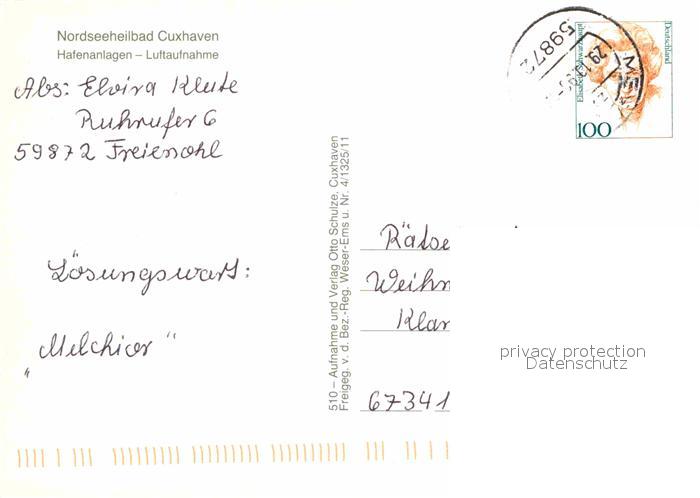 Nordseeheilbad Cuxhaven
Hafenanlagen – Luftaufnahme
Abs: Elvira Klute
Ruhrufer 6
59872 Freienohl
Lösungswort:
„Melchior"
510 – Aufnahme und Verlag Otto Schulze, Cuxhaven
Freigeg. v. d. Bez.-Reg. Weser-Ems u. Nr. 4/1325/11
59872
Deutschland
100
Rätse
Weihn
Klar
67341
privacy protection
Datenschutz